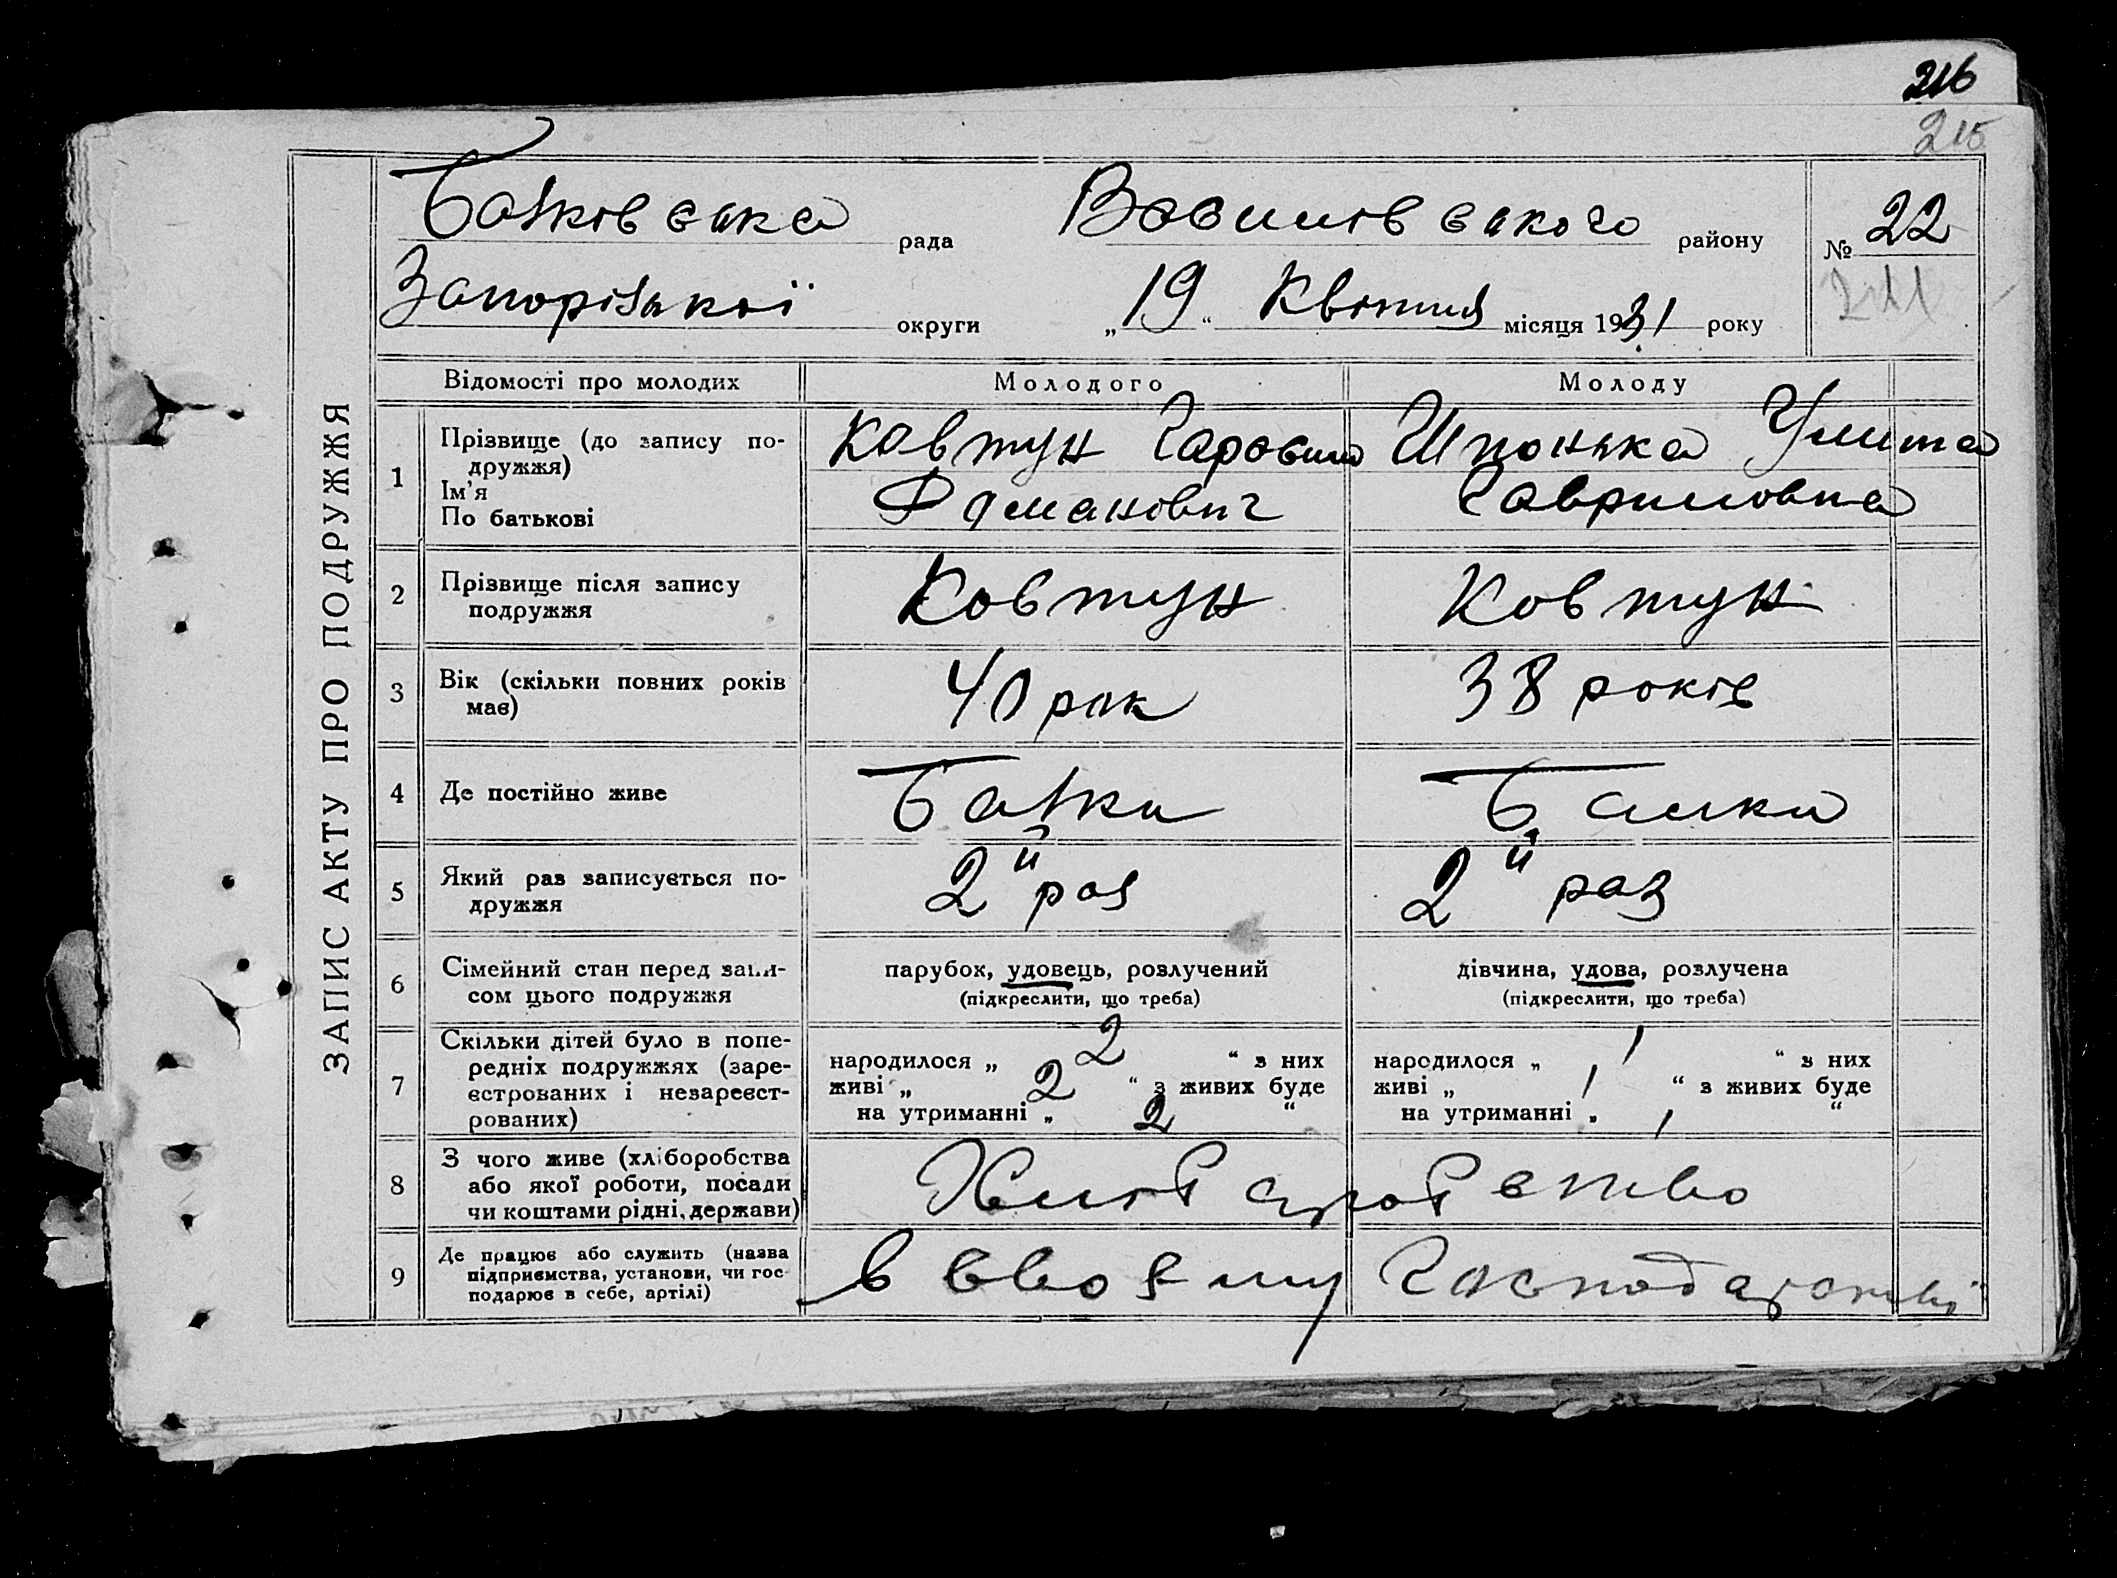 216
215
Балківська рада Василівського району № 22
Запорізької округи „ 19 “ Квітня місяця 1931 року
ЗАПИС АКТУ ПРО ПОДРУЖЖЯ
Відомості про молодих Молодого Молоду
1 Прізвище (до запису по-
дружжя)
Ім'я
По батькові
Ковтун Гарасим
Шпонька Улита
Гавриловна
2 Прізвище після запису
подружжя
Ковтун Ковтун
3 Вік (скільки повних років
має)
40 рок 38 років
4 Де постійно живе Балки Балки
5 Який раз записується по-
дружжя
2й раз 2й раз
6 Сімейний стан перед запи-
сом цього подружжя
парубок, удовець, розлучений
(підкреслити, що треба)
дівчина, удова, розлучена
(підкреслити, що треба)
7 Скільки дітей було в попе-
редніх подружжях (заре-
єстрованих і незареєст-
рованих)
народилося „ 2 “ з них
живі „ 2 “ з живих буде
на утриманні „ 2 “
народилося „ 1 “ з них
живі „ 1 “ з живих буде
на утриманні „ 1 “
8 З чого живе (хліборобства
або якої роботи, посади
чи коштами рідні, держави)
Хлібаробство
9 Де працює або служить (назва
підприємства, установи, чи гос-
подарює в себе, артілі)
в свому Господарстві